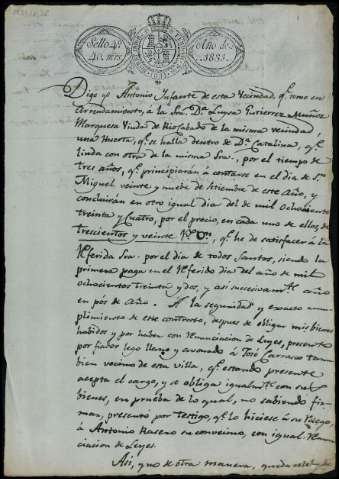 Sello 4º
40 mrs.
Año de
Digo yo Antonio Infante de esta vecindad, qe. tomo en
arrendamiento, à la Sra. Dª Luysa Gutierrez Muñoz
Marquesa Viuda de de la misma vecindad,
una Huerta, qe. se halla dentro de Dª Catalina, qe.
linda con otra de la misma Sra., por el tiempo de
tres años, qe. principiarán à contarse en el dia de Sn.
Miguel veinte y nueve de Setiembre de este Año, y
concluirán en otro igual dia del de mil ochocientos
treinta y Cuatro, por el precio, en cada uno de ellos, de
trescientos y veinte Rs. Vn., qe. ha de satisfacer à la
Referida Sra. por el dia de todos Santos, siendo la
primera paga en el Referido dia del año de mil
ochocientos treinta y dos, y asi sucesivamte. año
en pós de Año. A la seguridad y exacto cum-
plimiento de este contrato, despues de obligar mis bienes
habidos y por haber con Renunciacion de Leyes, presento
por fiador lego llano y avonado à José Carrasco tam-
bien vecino de esta villa, qe. estando presente
acepta el cargo, y se obliga igualmte. con sus
bienes, en prueba de lo qual, no sabiendo fir-
mar, presentó por testigo, qe. lo hiciese à su Ruego,
à Antonio su convecino, con igual Renun-
ciacion de Leyes.
Asi, que de otra manera, queda